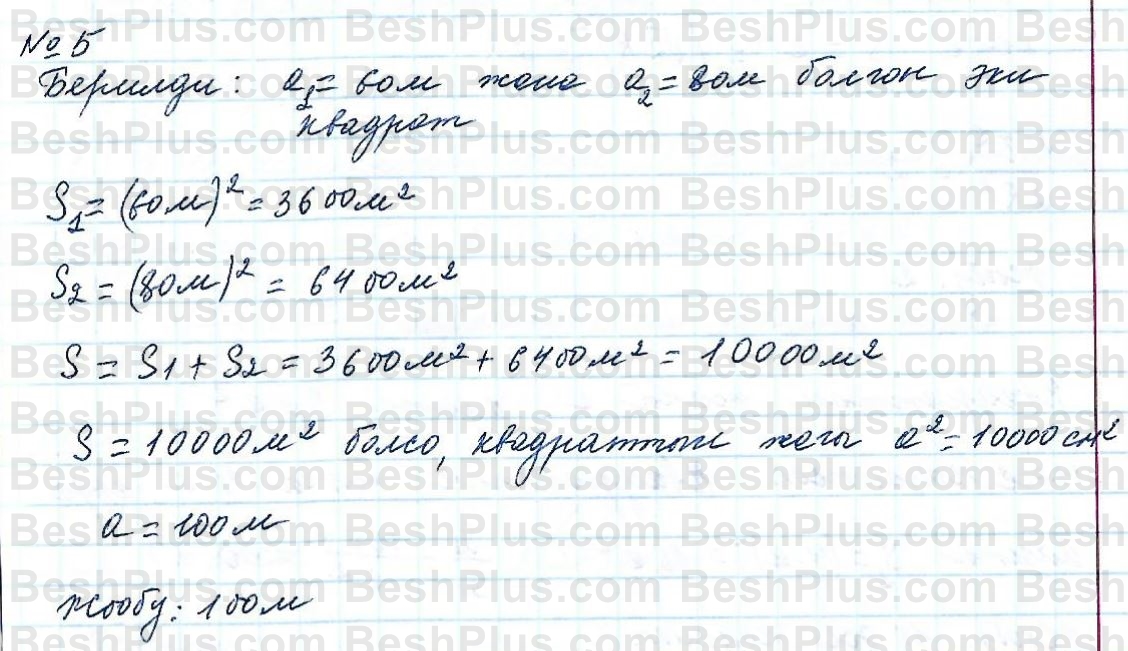 № 5
Берилди: a₁ = 60м жана a₂ = 80м болгон эки
квадрат
S₁ = (60м)² = 3600м²
S₂ = (80м)² = 6400м²
S = S₁ + S₂ = 3600м² + 6400м² = 10000м²
S = 10000м² болсо, квадраттын жагы a² = 10000см²
a = 100м
Жообу: 100м
BeshPlus.com